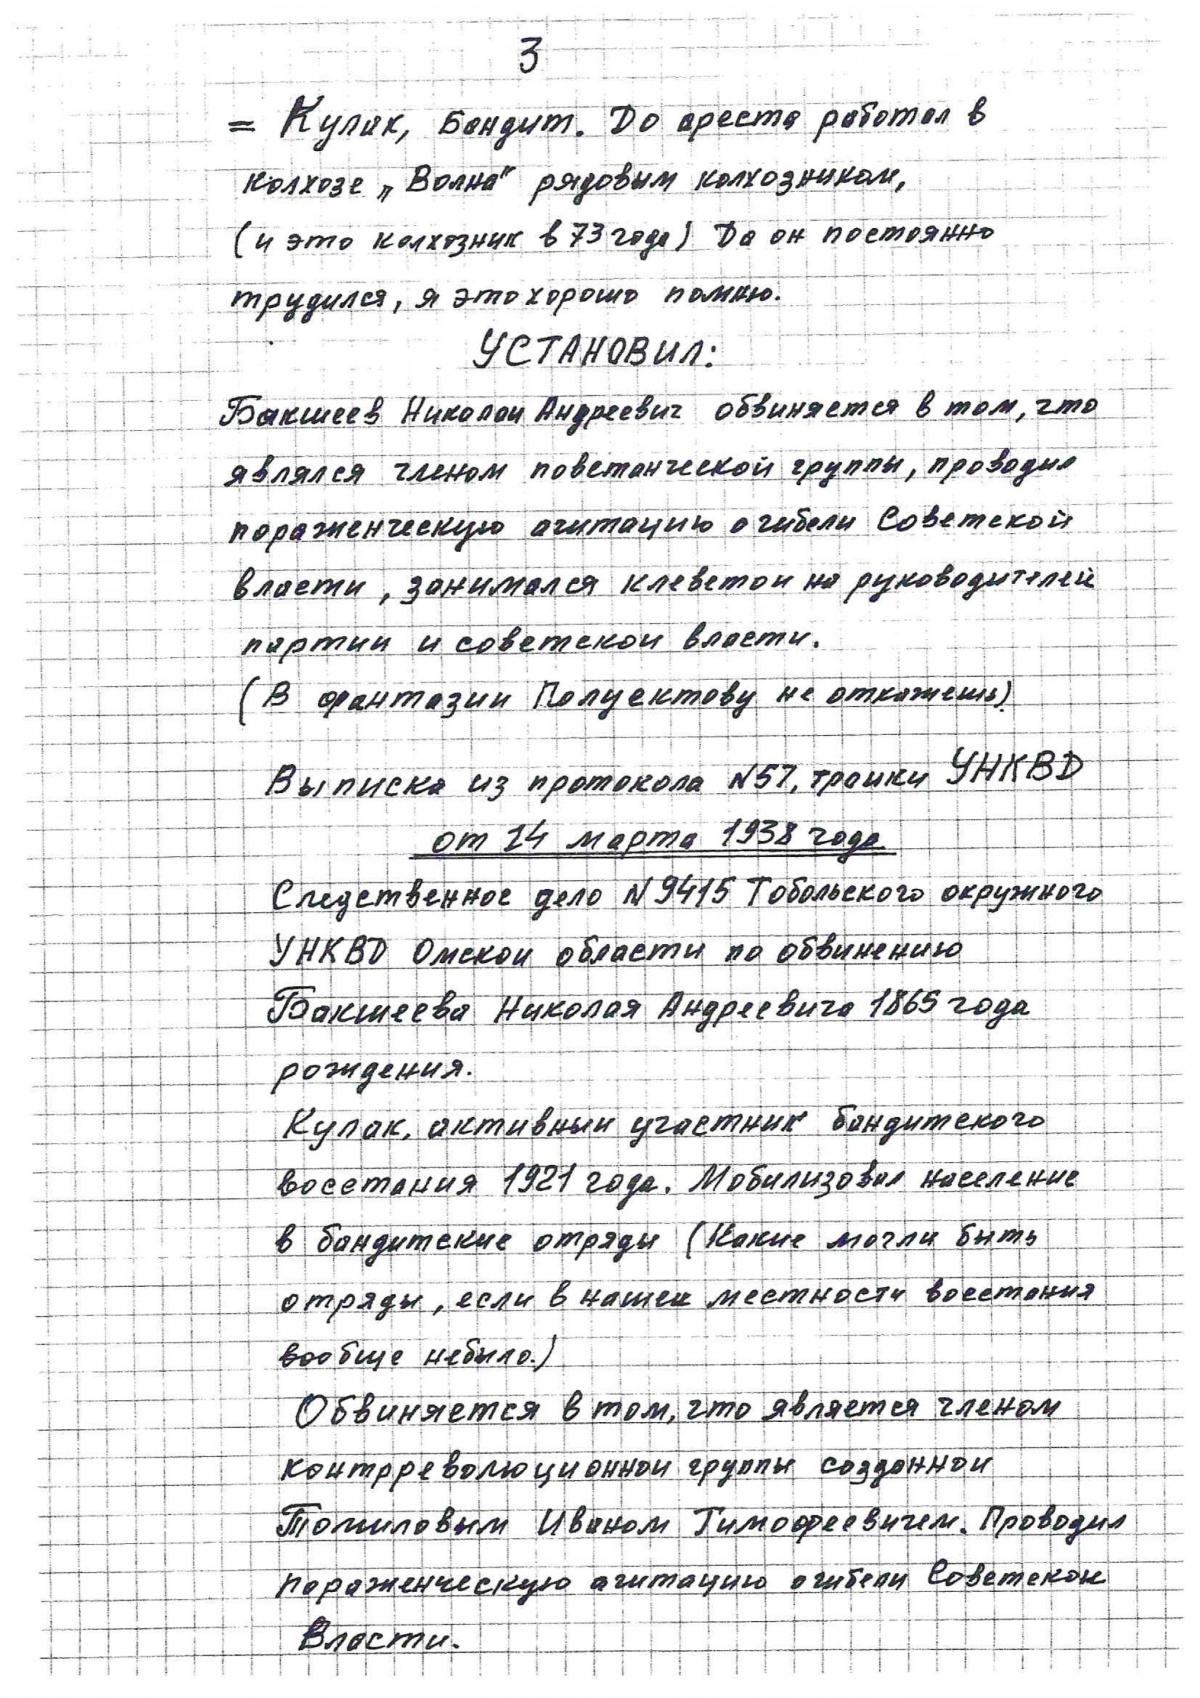 3
= Кулак, бандит. До ареста работал в
колхозе „Волна" рядовым колхозником,
(и это колхозник в 73 года) Да он постоянно
трудился, я это хорошо помню.
УСТАНОВИЛ:
Бакшеев Николай Андреевич обвиняется в том, что
являлся членом повстанческой группы, проводил
пораженческую агитацию о гибели Советской
власти, занимался клеветой на руководителей
партии и советской власти.
(В фантазии Полуектову не откажешь)
Выписка из протокола №57, тройки УНКВД
от 14 марта 1938 года
Следственное дело №9415 Тобольского окружного
УНКВД Омской области по обвинению
Бакшеева Николая Андреевича 1865 года
рождения.
Кулак, активный участник бандитского
восстания 1921 года. Мобилизовал население
в бандитские отряды (Какие могли быть
отряды, если в нашей местности восстания
вообще небыло.)
Обвиняется в том, что является членом
контрреволюционной группы созданной
Томиловым Иваном Тимофеевичем. Проводил
пораженческую агитацию о гибели Советской
Власти.